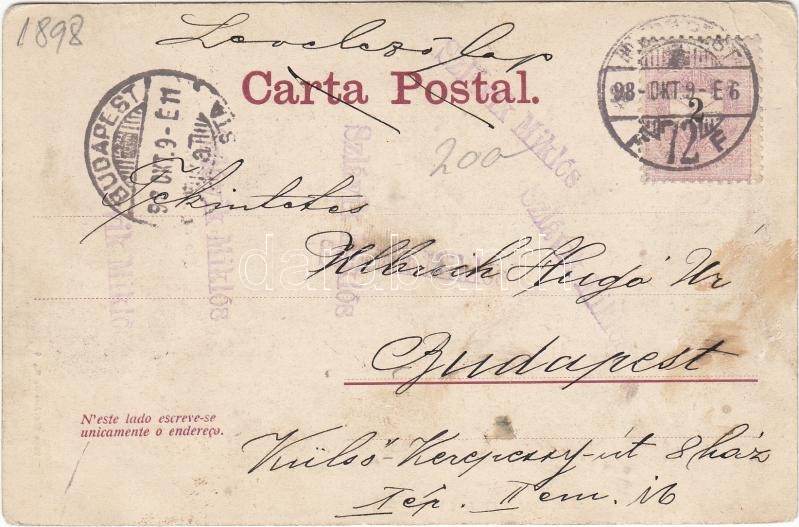 1898
Levelező lap
Carta Postal.
BUDAPEST
98 OKT 9-E 11
98-OKT 9-E 6
72
2
200
Szlávik Miklós
Szlávik Miklós
Tekintetes
Ulbrich Hugó Úr
Budapest
N'este lado escreve-se
unicamente o endereço.
Külső-Kerepesi-út 8 ház
I ép. II em. 16
darabanth